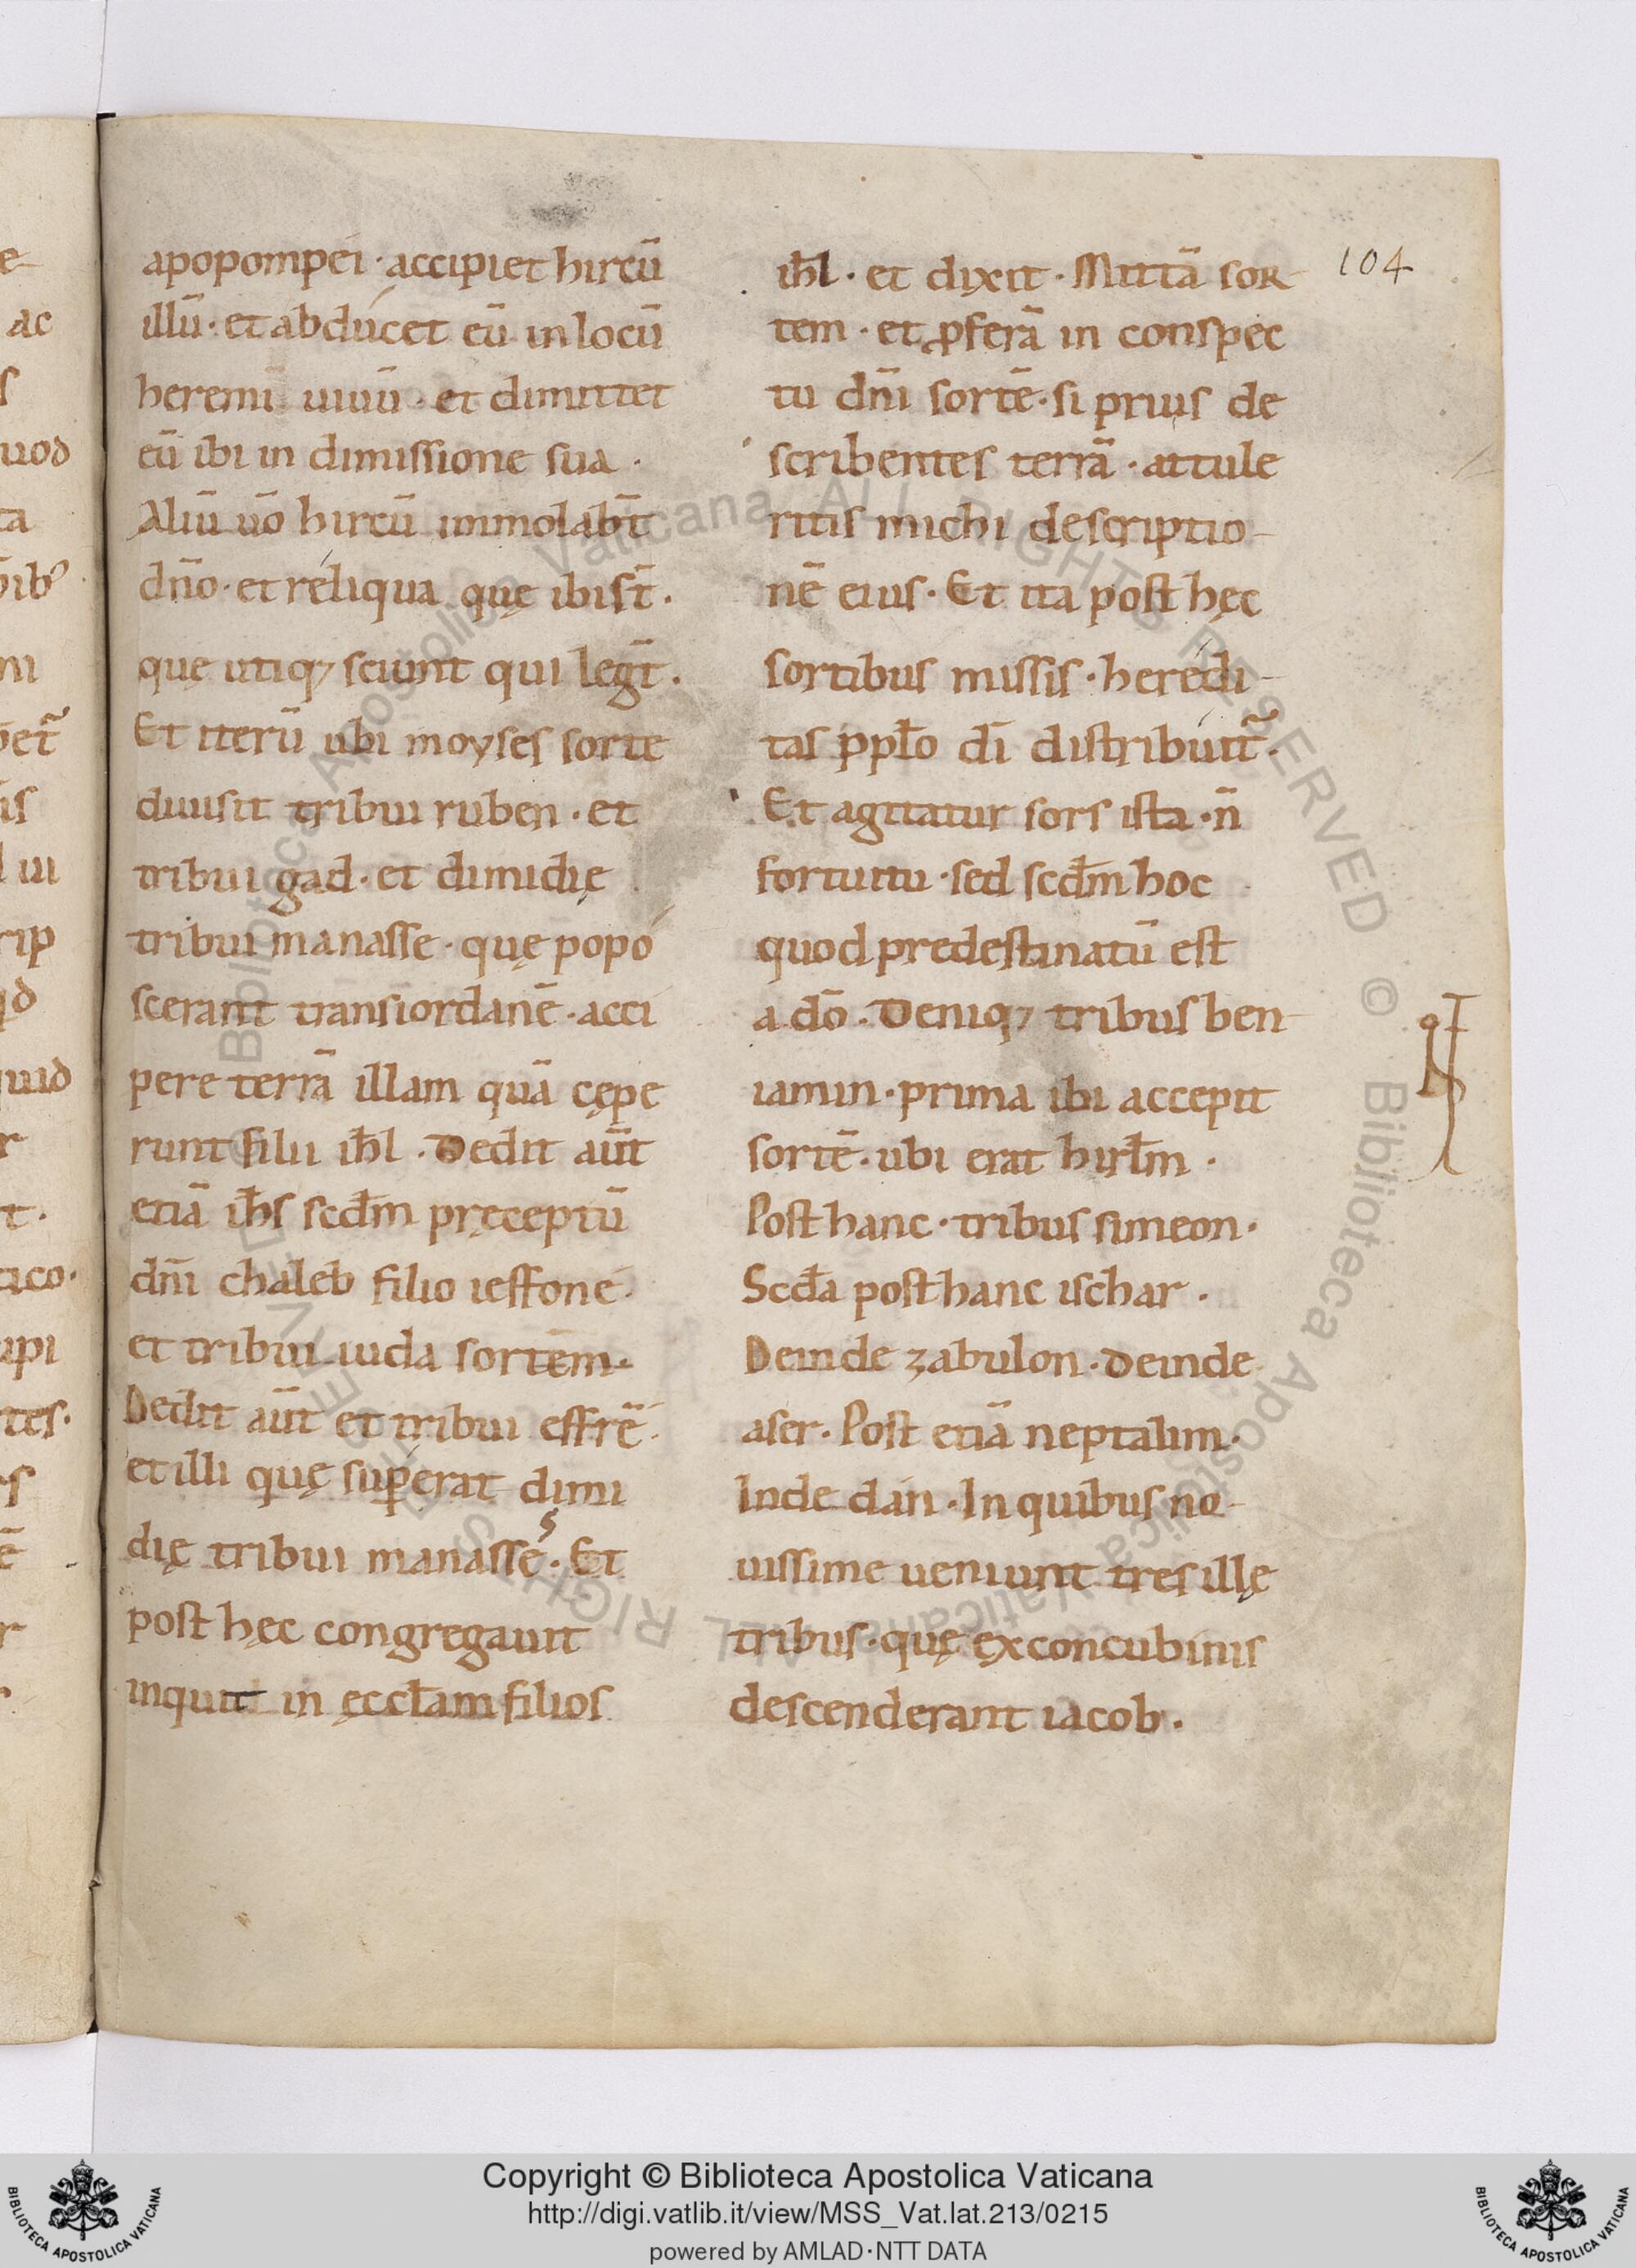 apopompei · accipiet hircū
illū · et abdúcet eū in locū
heremi uiuū · et dimittet
eū ibi in dimissione sua ·
Aliū uō hircū immolab̄t
dn̄o · et réliqua quę ibi st̄ ·
quę utiq; sciunt qui legt̄ ·
Et iterū ubi moyses sorte
diuisit tribui ruben · et
tribui gad · et dimidię
tribui manasse · quę popó
scerant transiordanē · acci
pere terrā illam quā cępe
runt filii ih̄l · Dedit aūt
etiā ih̄s scd̄m pręceptū
dn̄i chaleb filio ieffone ·
et tribui iuda sortem ·
Dedit aūt et tribui effrē ·
et illi quę supérat dimi
dię tribui manasse · Et
post hęc congregauit
inquit in ęccl̄am filios
ih̄l · et dixit · Mittā sor-
tem · et ꝓferā in conspec
tu dn̄i sortē · si prius de
scribentes terrā · attule
ritis michi descriptio-
nē eius · Et ita post hęc
sortibus missis · herédi-
tas ppl̄o dī distribuit̃ ·
Et agitatur sors ista · n̄
fortuitu · sed scd̄m hoc
quod predestinatū est
a dō · Deniq; tribus ben-
iamin · prima ibi accepit
sortē · ubi erat hirl̄m ·
Post hanc · tribus simeon ·
Scd̄a post hanc ischar ·
Deinde zabulon · deinde
aser · Post etiā neptalim ·
Inde dán · In quibus no-
uissime ueniunt tres illę
tribus · quę ex concubinis
descenderant iacob ·
104
Copyright © Biblioteca Apostolica Vaticana
http://digi.vatlib.it/view/MSS_Vat.lat.213/0215
powered by AMLAD·NTT DATA
BIBLIOTECA APOSTOLICA VATICANA
BIBLIOTECA APOSTOLICA VATICANA